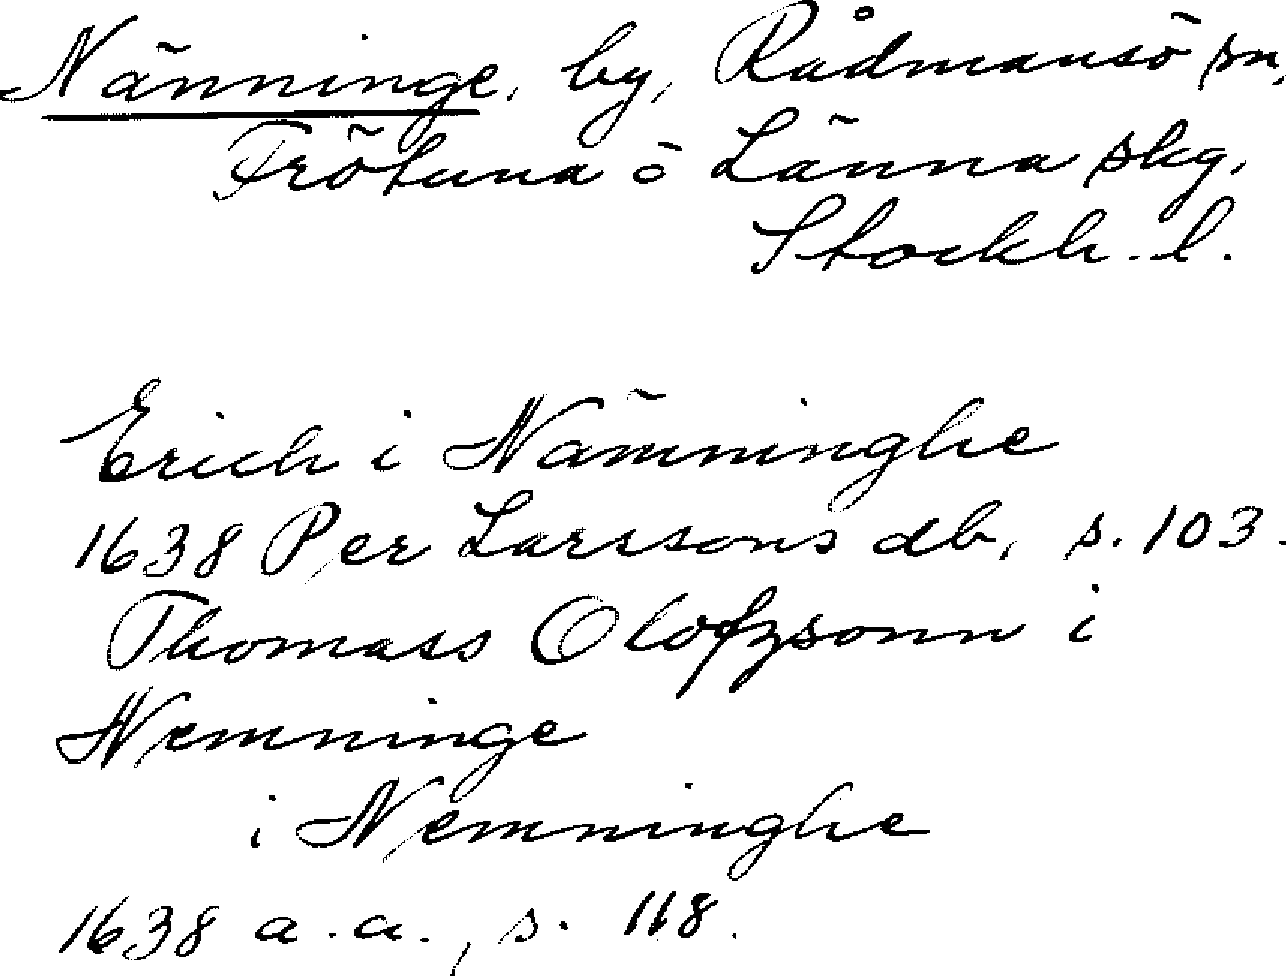 Nänninge, by, Rådmansö sn,
Frötuna o Länna skg,
Stockh. l.
Erich i Nämninghe
1638 Per Larssons db, s. 103.
Thomass Olofzsonn i
Nemninge
i Nemninghe
1638 a.a., s. 118.